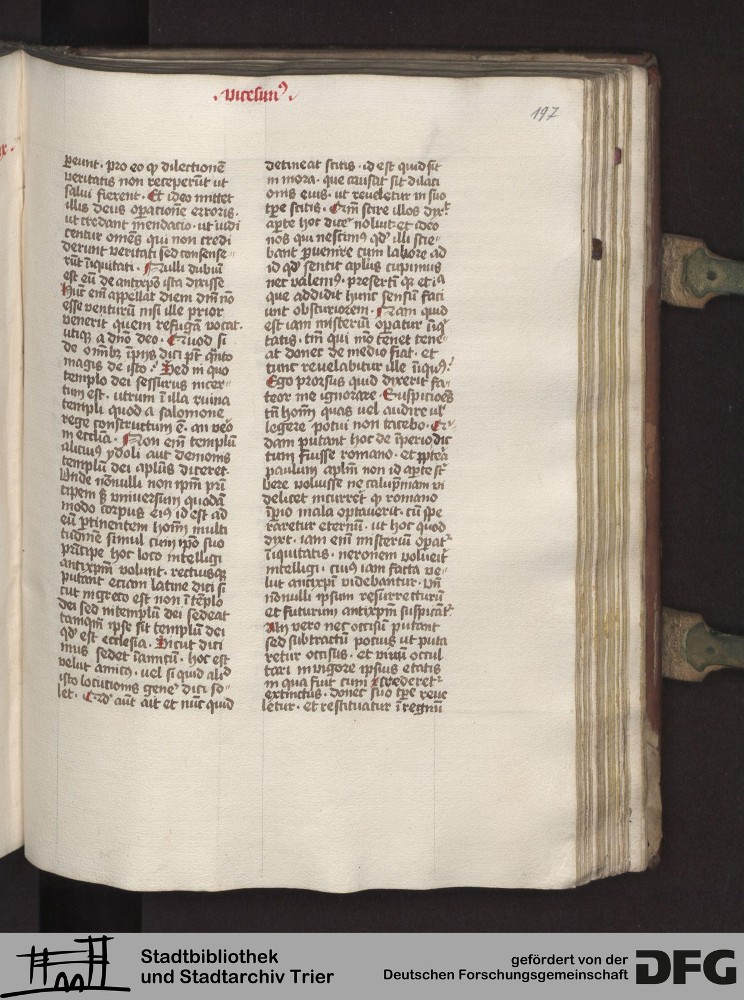 .vicesim⁹.
197
ꝑeunt. pro eo ꝙ dilectionē
veritatis non receperūt ut
salui fierent. Et ideo mittet
illis deus oꝑationē erroris.
ut credant mendacio. ut iudi
centur omēs qui non credi
derunt veritati sed consense⸗
rūt iniquitati. Nulli dubiū
est eū de antixpō ista dixisse
Hūc em̄ appellat diem dm̄ nō
esse venturū nisi ille prior
venerit quem refugā vocat.
utiqꝫ a dn̄o deo. Quod si
de om̄ibꝫ īpijs dici pt̄ q̄nto
magis de isto. Sed in quo
templo dei sessurus incer⸗
tum est. utrum ī illa ruina
templi quod a salomone
rege constructum ē. an vero
in ecclīa. Non em̄ templū
alicui⁹ ydoli aut demonis
templū dei aplūs diceret.
Vnde nōnulli non ipm̄ prin
cipem sꝫ vniuersum quodā
modo corpus ei⁹ id est ad
eū ꝑtinentem hoīm multi
tudinē simul cum ip̄o suo
prīcipe hoc loco intelligi
antixpm̄ volunt. rectiusqꝫ
putant eciam latine dici si
cut in greco est non ī tēplo
dei sed in templū dei sedeat
tamqm̄ ipse sit templū dei
qd' est ecclesia. Sicut dici
mus sedet ī amicū. hoc est
velut amic⁹. vel si quid alid
isto locutionis gene' dici so⸗
let. Qd' aūt ait et nūc quid
detineat scitis. id est quid sit
in mora. que causat sit dilati
onis eius. ut reueletur in suo
tꝑe scitis. Qm̄ scire illos dyxͭ
aꝑte hoc dicē noluit et ideo
nos qui nescim⁹ qd' illi scie⸗
bant ꝑuenire cum labore ad
id qd' sentit aplūs cupimus
nec valem⁹. presertī qꝛ et ia
que addidit hunc sensū faci
unt obscuriorem. Nam quid
est iam misteriū oꝑatur īiq'
tatis. tm̄ qui mō tenet tene⸗
at donec de medio fiat. et
tunc reuelabitur ille īiqu⁹.
Ego prorsus quid dixerit fa⸗
teor me ignorare. Suspiciōes
tn̄ hoīm quas vel audire vl'
legere potui non tacebo. Qi⸗
dam putant hoc de īperio dic
tum fuisse romano. et ꝓpterea
paulum aplm̄ non id aꝑte scͥ
bere voluisse ne calūpniam vi
delicet incurreret ꝙ romano
īpio mala optauerit. cū spe
raretur eternū. ut hoc quod
dyxt. iam em̄ misteriū oꝑat'
īiquitatis. neronem voluerit
intelligi. cui⁹ iam facta ve⸗
lut antixpi videbantur. Vn̄
nōnulli ipsum resurrecturū
et futurum antixpm̄ suspicāt'.
Alij vero nec occisū putant
sed subtractū potius ut puta
retur occisus. et viuū occul
tari in vigore ipsius etatis
in qua fuit cum crederet'
extinctus. donec suo tꝑe reue
letur. et restituatur ī regnū
Stadtbibliothek
und Stadtarchiv Trier
gefördert von der
Deutschen Forschungsgemeinschaft
DFG